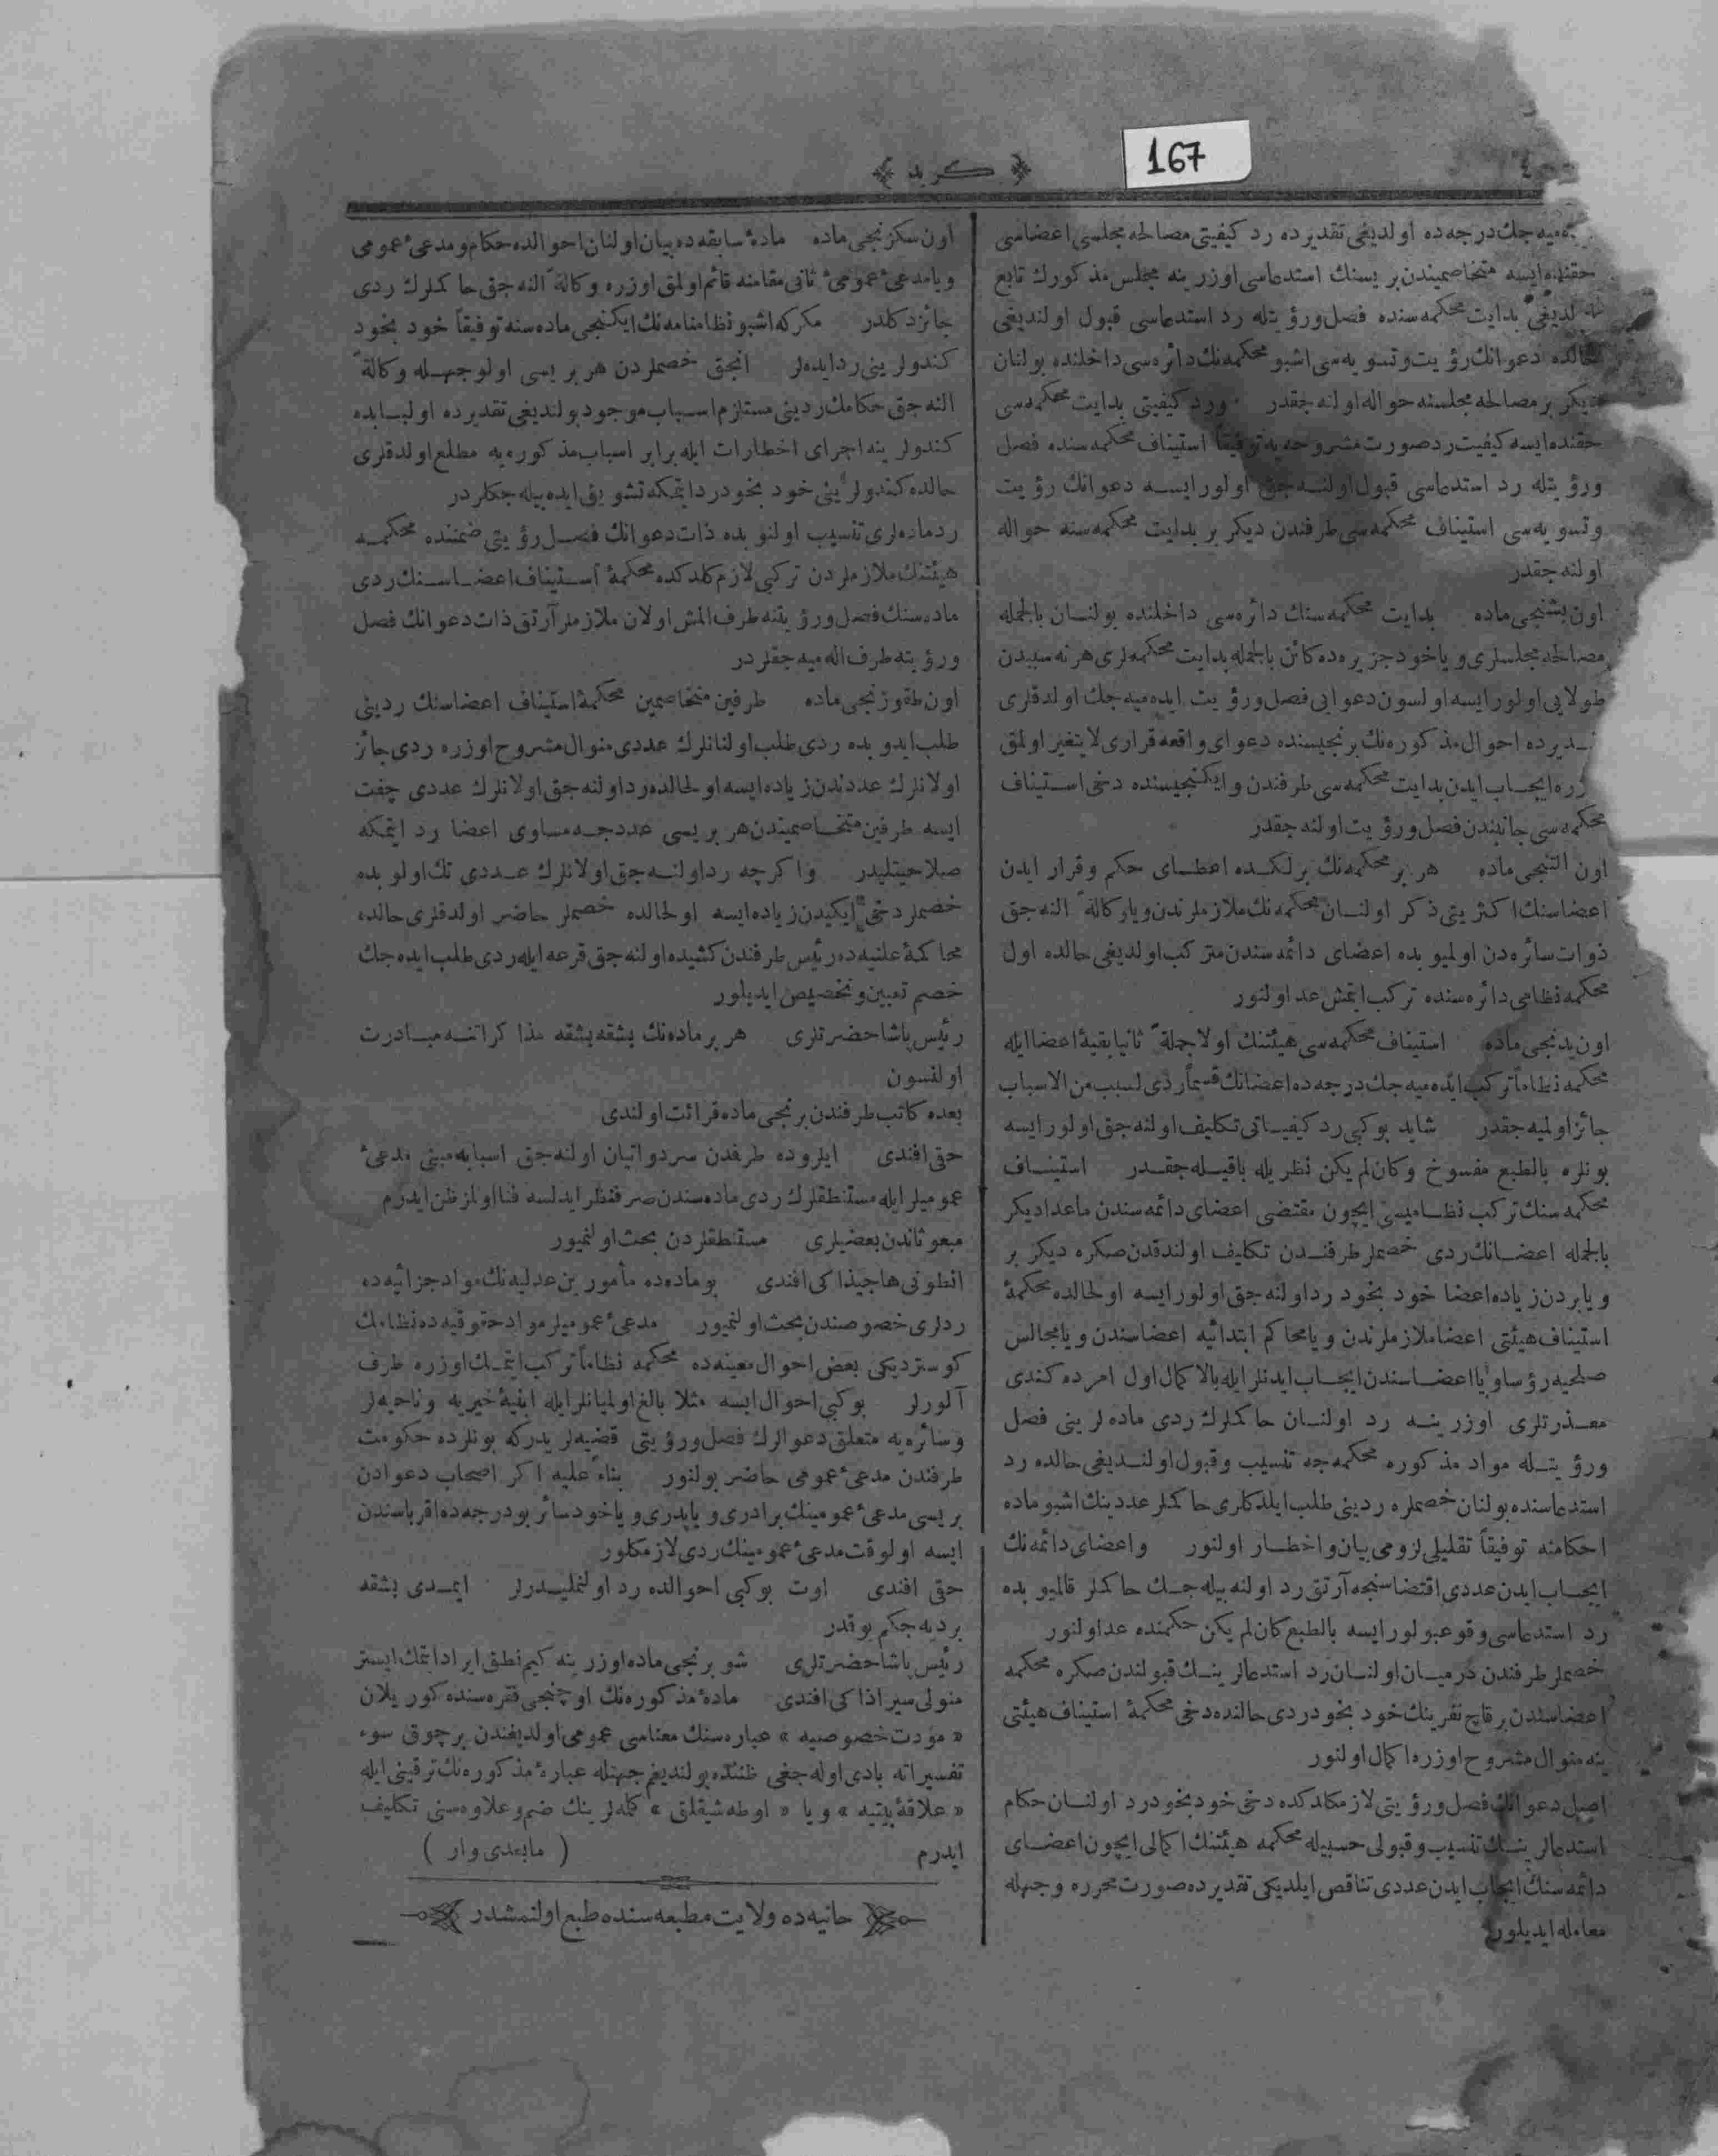 167
كريد
٤
ميه‌جك درجه‌ده اولديغى تقديرده رد كيفيتى مصالحه مجلسى اعضاسى
حقنده ايسه متخاصميندن بريسنك استدعاسى اوزرينه مجلس مذكورك تابع
بدايت محكمه‌سنده فصل ورؤيتله رد استدعاسى قبول اولنديغى
حالده دعوانك رؤيت وتسويه‌سى اشبو محكمه‌نك دائره‌سى داخلنده بولنان
ديكر بر مصالحه مجلسنه حواله اولنه‌جقدر ورد كيفيتى بدايت محكمه‌سى
حقنده ايسه كيفيت رد صورت مشروحه‌يه توفيقاً استيناف محكمه‌سنده فصل
ورؤيتله رد استدعاسى قبول اولنه‌جق اولور ايسه دعوانك رؤيت
وتسويه‌سى استيناف محكمه‌سى طرفندن ديكر بر بدايت محكمه‌سنه حواله
اولنه‌جقدر
اون بشنجى ماده بدايت محكمه‌سنك دائره‌سى داخلنده بولنان بالجمله
مصالحه مجلسلرى وياخود جزيره‌ده كائن بالجمله بدايت محكمه‌لرى هر نه سببدن
طولايى اولور ايسه اولسون دعوايى فصل ورؤيت ايده‌ميه‌جك اولدقلرى
احوال مذكوره‌نك برنجيسنده دعواى واقعه قرارى لايتغير اولمق
ايجاب ايدن بدايت محكمه‌سى طرفندن وايكنجيسنده دخى استيناف
محكمه‌سى جانبندن فصل ورؤيت اولنه‌جقدر
اون التنجى ماده هر بر محكمه‌نك برلكده اعطاى حكم وقرار ايدن
اعضاسنك اكثريتى ذكر اولنان محكمه‌نك ملازملرندن ويا وكالةً النه‌جق
ذوات سائره‌دن اولميوبده اعضاى دائمه‌سندن متركب اولديغى حالده اول
محكمه نظامى دائره‌سنده تركب ايتمش عد اولنور
اون يدنجى ماده استيناف محكمه‌سى هيئتنك اولا جملةً ثانيا بقيۀ اعضا ايله
محكمه نظاماً تركب ايده‌ميه‌جك درجه‌ده اعضانك قسماً ردى لسبب من الاسباب
جائز اولميه‌جقدر شايد بوكبى رد كيفياتى تكليف اولنه‌جق اولور ايسه
بونلره بالطبع مفسوخ وكان لم يكن نظريله باقيله‌جقدر استيناف
محكمه‌سنك تركب نظاميسى ايچون مقتضى اعضاى دائمه‌سندن ماعدا ديكر
بالجمله اعضانك ردى خصملر طرفندن تكليف اولندقدن صكره ديكر بر
ويا بردن زياده اعضا خود بخود رد اولنه‌جق اولور ايسه اولحالده محكمۀ
استيناف هيئتى اعضا ملازملرندن ويا محاكم ابتدائيه اعضاسندن ويا مجالس
صلحيه رؤسا ويا اعضاسندن ايجاب ايدنلر ايله بالاكمال اول امرده كندى
معذرتلرى اوزرينه رد اولنان حاكملرك ردى ماده‌لرينى فصل
ورؤيتله مواد مذكوره محكمه‌جه تنسيب وقبول اولنديغى حالده رد
استدعاسنده بولنان خصملره ردينى طلب ايلدكلرى حاكملر عددينك اشبو ماده
احكامنه توفيقاً تقليلى لزومى بيان واخطار اولنور واعضاى دائمه‌نك
ايجاب ايدن عددى اقتضاسنجه آرتق رد اولنه‌بيله‌جك حاكملر قالميوبده
رد استدعاسى وقوعبولور ايسه بالطبع كان لم يكن حكمنده عد اولنور
خصملر طرفندن درميان اولنان رد استدعالرينك قبولندن صكره محكمه
اعضاسندن برقاچ نفرينك خود بخود ردى حالنده دخى محكمۀ استيناف هيئتى
ينه منوال مشروح اوزره اكمال اولنور
اصل دعوانك فصل ورؤيتى لازمكلدكده دخى خود بخود رد اولنان حكام
استدعالرينك تنسيب وقبولى حسبيله محكمه هيئتنك اكمالى ايچون اعضاى
دائمه‌سنك ايجاب ايدن عددى تناقص ايلديكى تقديرده صورت محرره وجهله
معامله ايديلور
اون سكزنجى ماده مادۀ سابقه‌ده بيان اولنان احوالده حكام ومدعىء عمومى
ويا مدعىء عمومىء ثانى مقامنه قائم اولمق اوزره وكالةً النه‌جق حاكملرك ردى
جائز دكلدر مكركه اشبو نظامنامه‌نك ايكنجى ماده‌سنه توفيقاً خود بخود
كندولرينى رد ايده‌لر انجق خصملردن هر بريسى اولوجهله وكالةً
النه‌جق حكامك ردينى مستلزم اسباب موجود بولنديغى تقديرده اولبابده
كندولرينه اجراى اخطارات ايله برابر اسباب مذكوره‌يه مطلع اولدقلرى
حالده كندولرينى خود بخود رد ايتمكه تشويق ايده‌بيله‌جكلردر
رد ماده‌لرى تنسيب اولنوبده ذات دعوانك فصل رؤيتى ضمننده محكمه
هيئتنك ملازملردن تركبى لازم كلدكده محكمۀ استيناف اعضاسنك ردى
ماده‌سنك فصل ورؤيتنه طرف المش اولان ملازملر آرتق ذات دعوانك فصل
ورؤيتنه طرف اله‌ميه‌جقلردر
اون طقوزنجى ماده طرفين متخاصمين محكمۀ استيناف اعضاسنك ردينى
طلب ايدوبده ردى طلب اولنانلرك عددى منوال مشروح اوزره ردى جائز
اولانلرك عددندن زياده ايسه اولحالده رد اولنه‌جق اولانلرك عددى چفت
ايسه طرفين متخاصميندن هر بريسى عددجه مساوى اعضا رد ايتمكه
صلاحيتليدر واكرچه رد اولنه‌جق اولانلرك عددى تك اولوبده
خصملر دخى ايكيدن زياده ايسه اولحالده خصملر حاضر اولدقلرى حالده
محاكمۀ علنيه‌ده رئيس طرفندن كشيده اولنه‌جق قرعه ايله ردى طلب ايده‌جك
خصم تعيين وتخصيص ايديلور
رئيس پاشا حضرتلرى هر بر ماده‌نك بشقه بشقه مذاكراتنه مبادرت
اولنسون
بعده كاتب طرفندن برنجى ماده قرائت اولندى
حقى افندى ايلروده طرفمدن سرد واتيان اولنه‌جق اسبابه مبنى مدعىء
عموميلر ايله مستنطقلرك ردى ماده‌سندن صرفنظر ايدلسه فنا اولمز ظن ايدرم
مبعوثاندن بعضيلرى مستنطقلردن بحث اولنميور
انطونى هاجيذاكى افندى بو ماده‌ده مأمورين عدليه‌نك مواد جزائيه‌ده
ردلرى خصوصندن بحث اولنميور مدعىء عموميلر مواد حقوقيه‌ده نظامك
كوسترديكى بعض احوال معينه‌ده محكمه نظاماً تركب ايتمك اوزره طرف
آلورلر بوكبى احوال ايسه مثلا بالغ اولميانلر ايله ابنيۀ خيريه وناحيه‌لر
وسائره‌يه متعلق دعوالرك فصل ورؤيتى قضيه‌لريدركه بونلرده حكومت
طرفندن مدعىء عمومى حاضر بولنور بناءً عليه اكر اصحاب دعوادن
بريسى مدعىء عمومينك برادرى ويا پدرى وياخود سائر بو درجه‌ده اقرباسندن
ايسه اولوقت مدعىء عمومينك ردى لازمكلور
حقى افندى اوت بوكبى احوالده رد اولنمليدرلر ايمدى بشقه
بر ديه‌جكم يوقدر
رئيس پاشا حضرتلرى شو برنجى ماده اوزرينه كيم نطق ايراد ايتمك ايستر
منولى سيراذاكى افندى مادۀ مذكوره‌نك اوچنجى فقره‌سنده كوريلان
« مؤدت خصوصيه » عباره‌سنك معناسى عمومى اولديغندن برچوق سوء
تفسيراته بادى اوله‌جغى ظننده بولنديغم جهتله عبارۀ مذكوره‌نك ترقينى ايله
« علاقۀ بيتيه » ويا « اوطه‌شيقلق » كلمه‌لرينك ضم وعلاوه‌سنى تكليف
ايدرم ( مابعدى وار )
حانيه‌ده ولايت مطبعه‌سنده طبع اولنمشدر